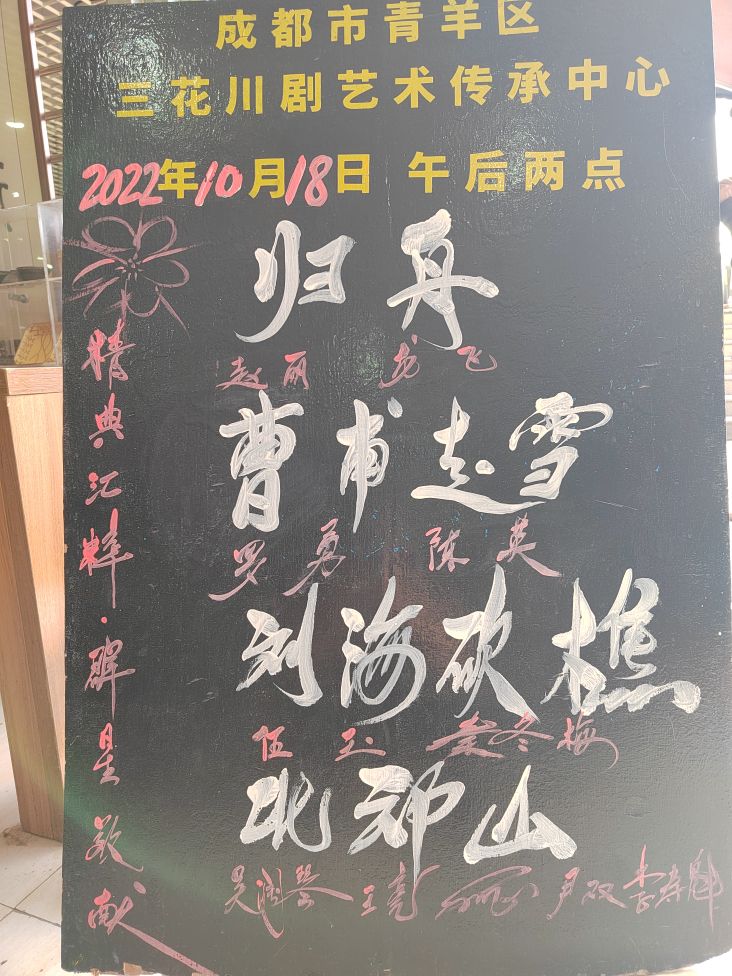 成都市青羊区
三花川剧艺术传承中心
2022年10月18日 午后两点
归舟
赵丽 龙飞
曹甫走雪
罗勇 陈英
刘海砍樵
伍玉 冬梅
北邙山
王亮 尹双 李寿魁
精典汇粹·群星敬献